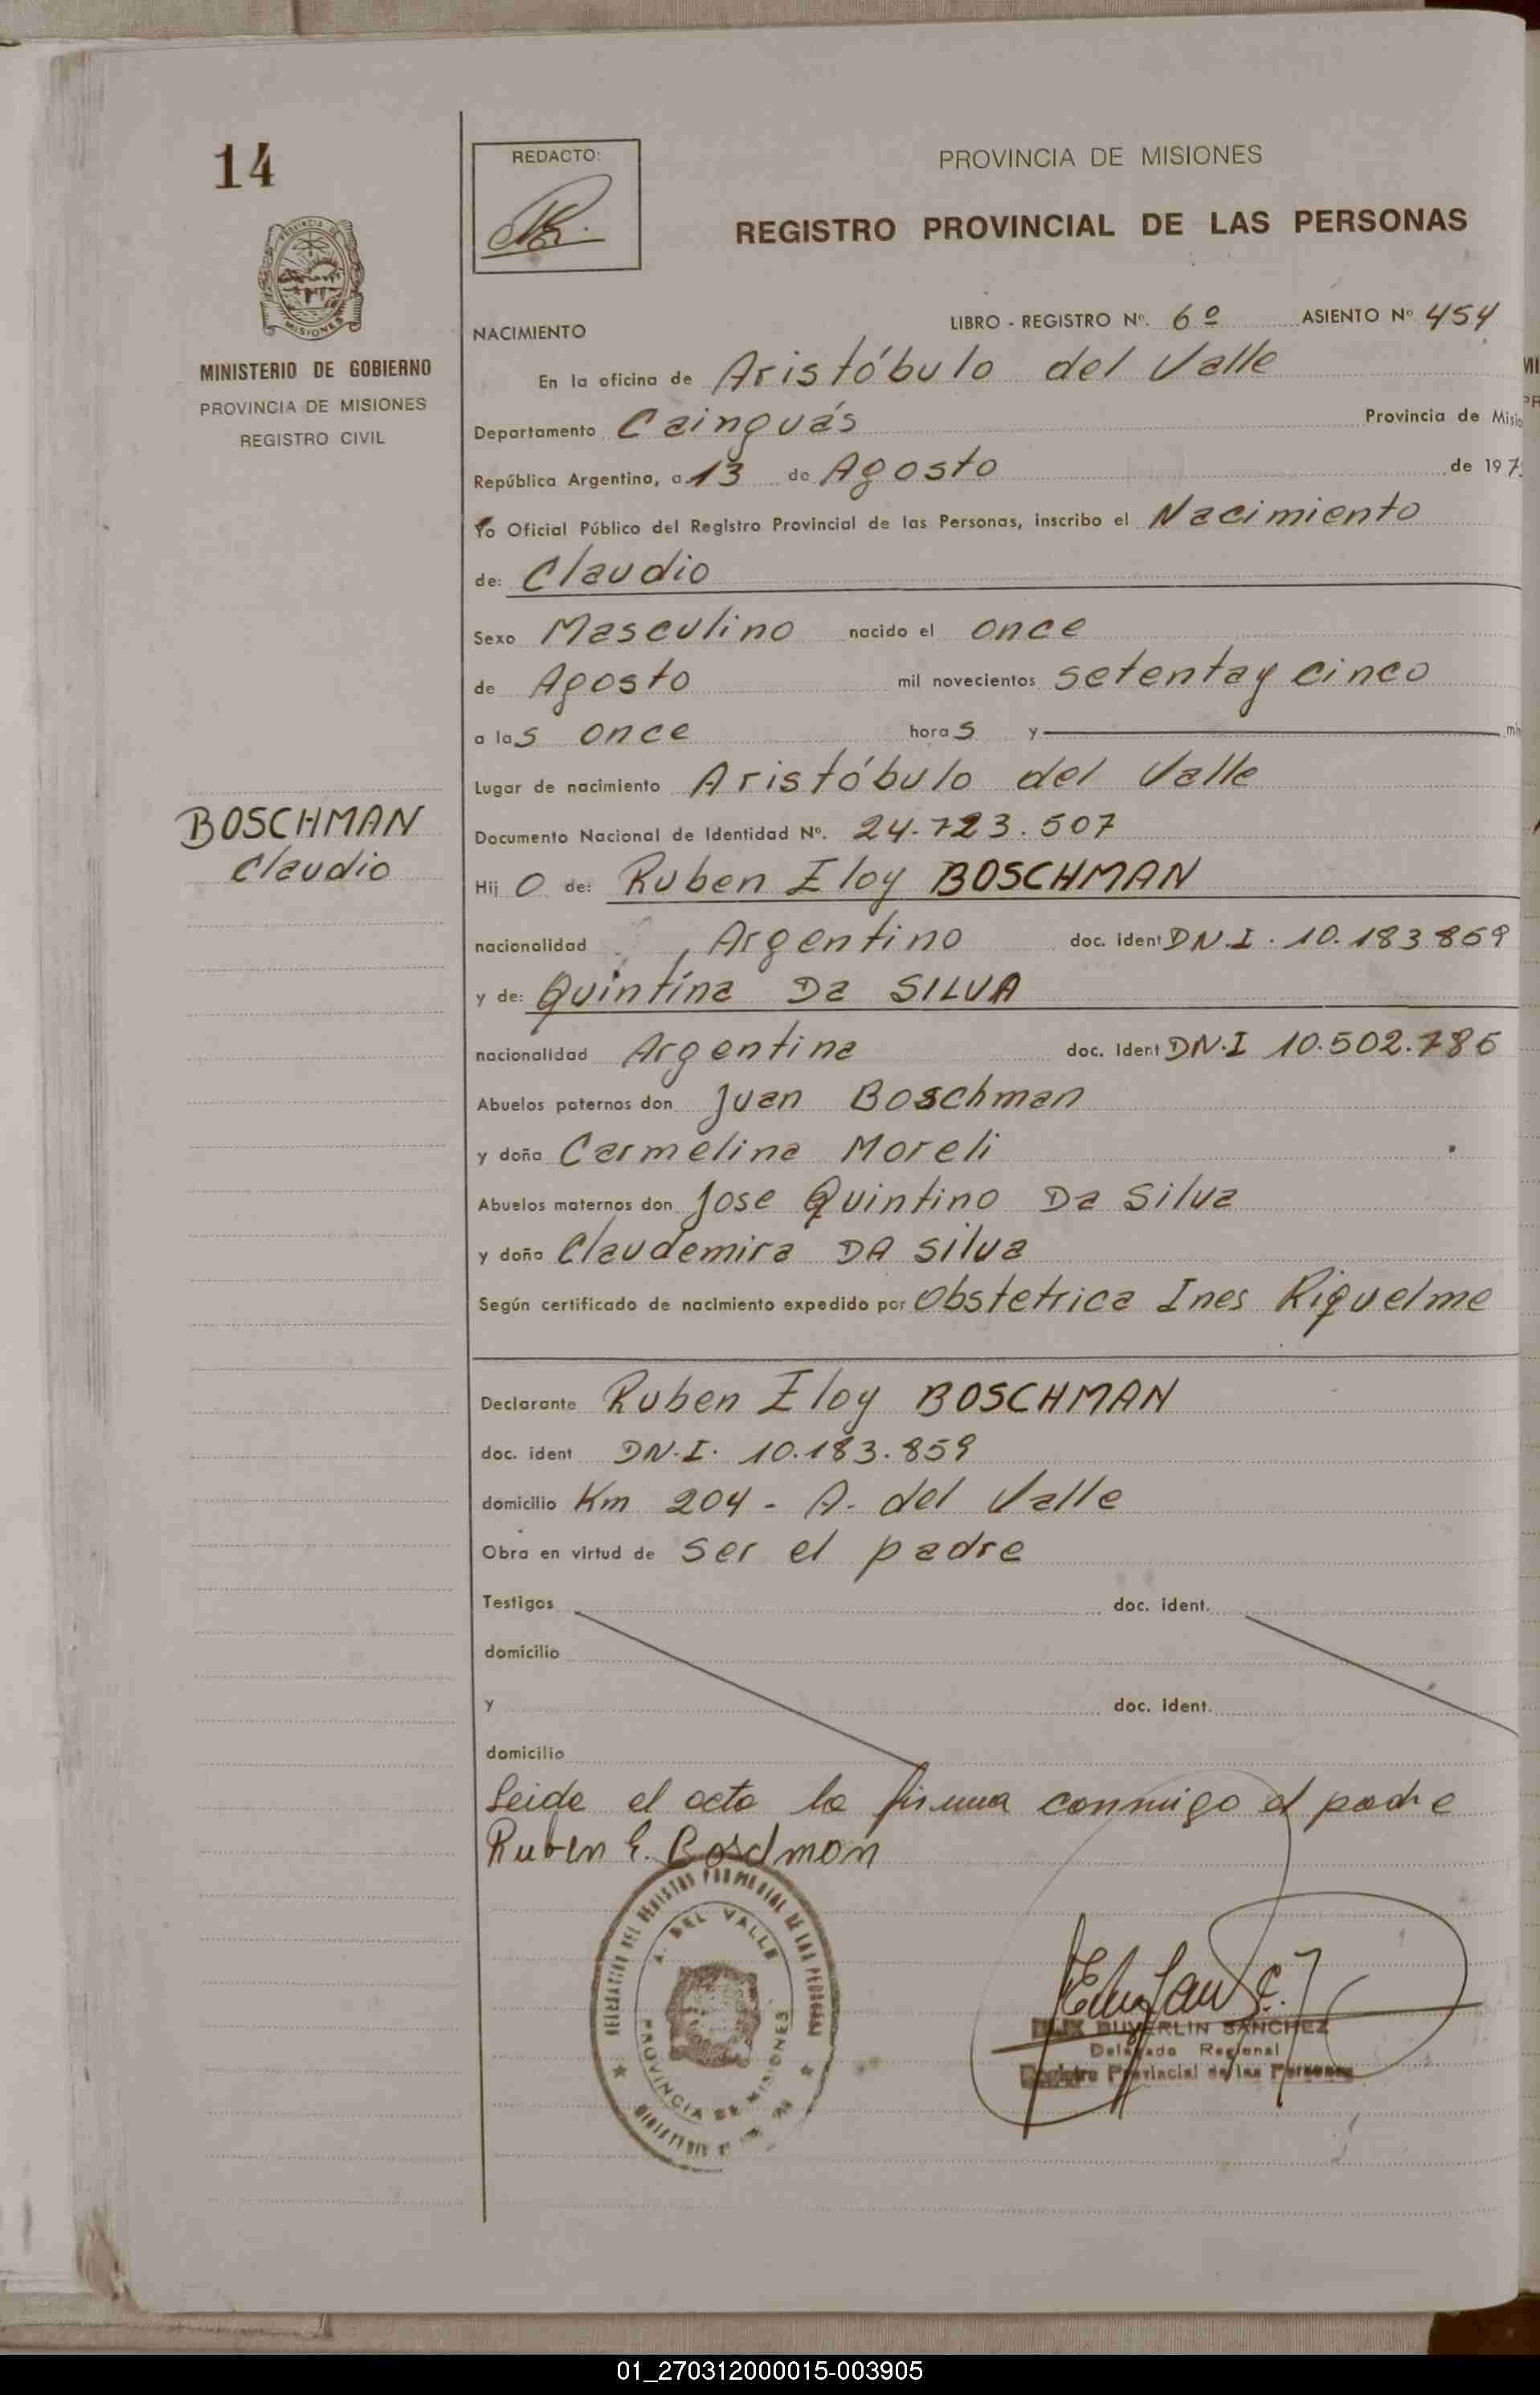 14
REDACTO:
PROVINCIA DE MISIONES
REGISTRO PROVINCIAL DE LAS PERSONAS
PROVINCIA DE
MISIONES
MINISTERIO DE GOBIERNO
PROVINCIA DE MISIONES
REGISTRO CIVIL
NACIMIENTO
LIBRO - REGISTRO Nº. 6º ASIENTO Nº 454
En la oficina de Aristóbulo del Valle
Departamento Cainguás Provincia de Misio
República Argentina, a 13 de Agosto de 197
Yo Oficial Público del Registro Provincial de las Personas, inscribo el Nacimiento
de: Claudio
Sexo Masculino nacido el once
de Agosto mil novecientos setenta y cinco
a las once horas y
Lugar de nacimiento Aristóbulo del Valle
BOSCHMAN
Claudio
Documento Nacional de Identidad Nº. 24.723.507
Hij O de: Ruben Eloy BOSCHMAN
nacionalidad Argentino doc. ident D.N.I. 10.183.859
y de: Quintina Da SILVA
nacionalidad Argentina doc. Ident D.N.I 10.502.786
Abuelos paternos don Juan Boschman
y doña Carmelina Moreli
Abuelos maternos don Jose Quintino Da Silva
y doña Claudemira DA Silva
Según certificado de nacimiento expedido por Obstetrica Ines Riquelme
Declarante Ruben Eloy BOSCHMAN
doc. ident D.N.I. 10.183.859
domicilio Km 204 - A. del Valle
Obra en virtud de ser el padre
Testigos doc. ident.
domicilio
y doc. ident.
domicilio
Leida el acta la firma conmigo el padre
Ruben E. Boschman
DEL REGISTRO PROVINCIAL DE LAS PERSONAS
A. DEL VALLE
PROVINCIA DE MISIONES
BUVERLIN SANCHEZ
Delegado Regional
Registro Provincial de las Personas
01_270312000015-003905